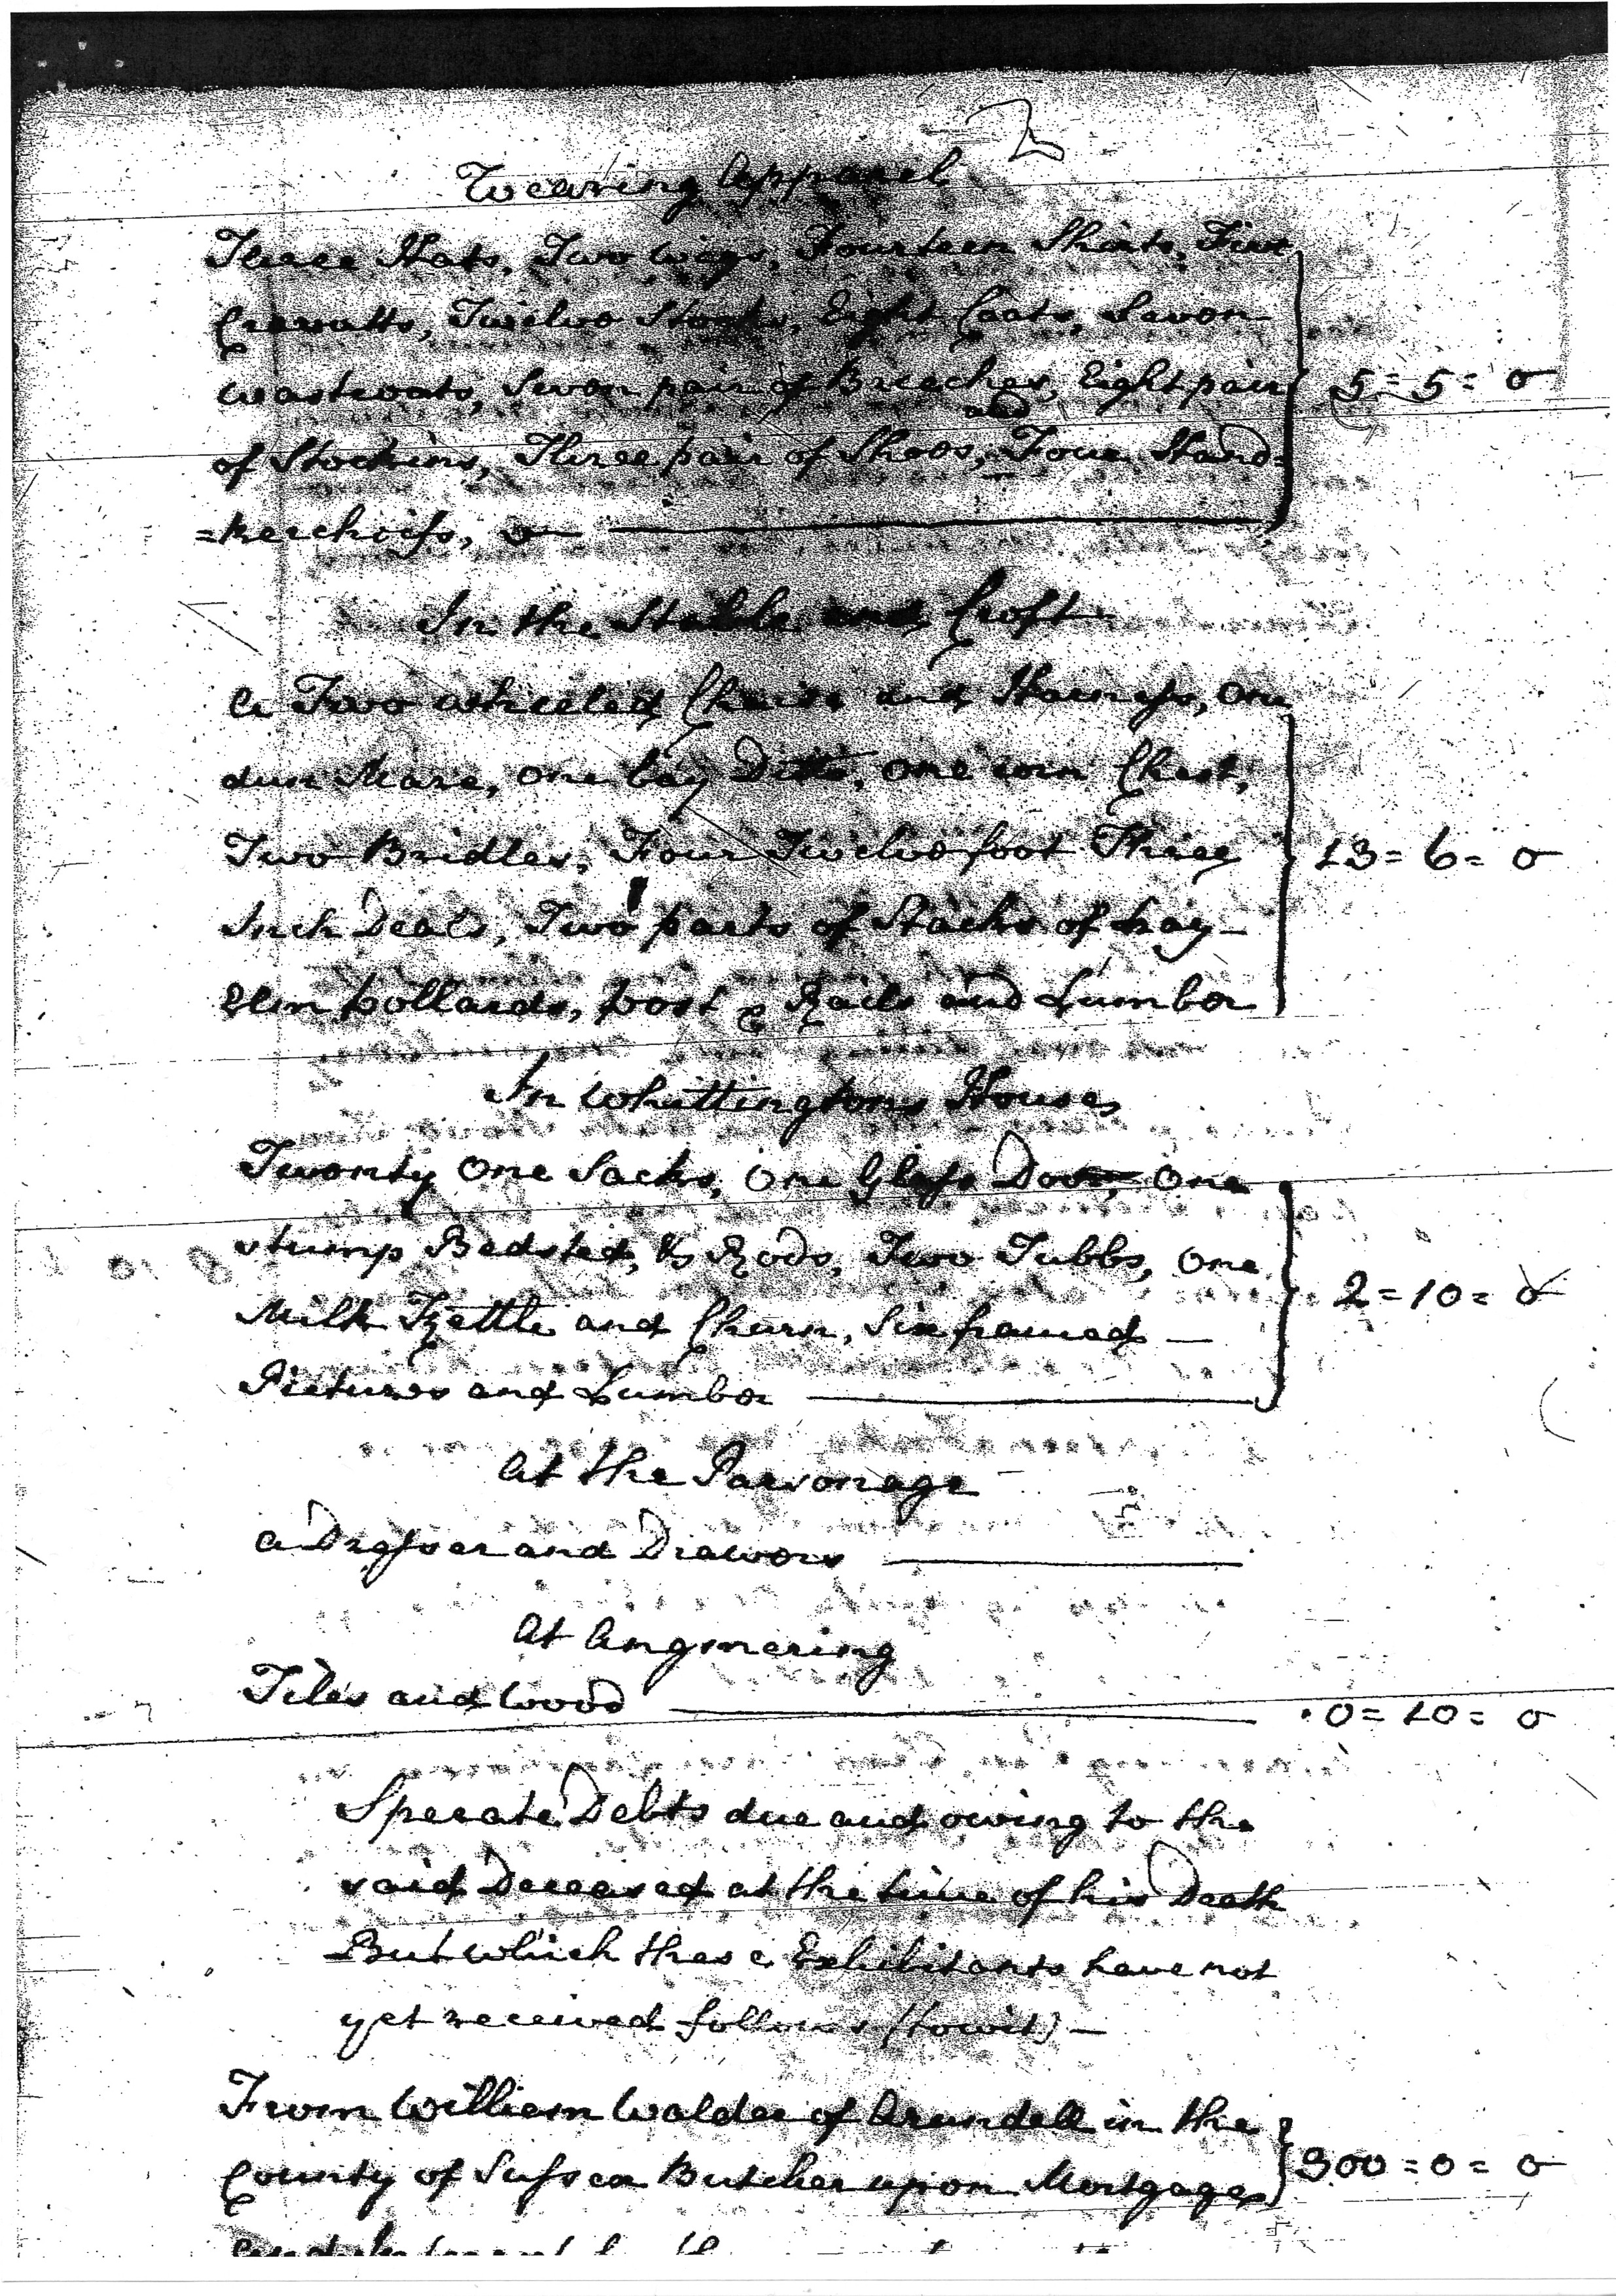 2
Wearing Apparel
Three Hats, Two wigs, Fourteen Shirts, Five
Cravatts, Twelve Stocks, Eight Coats, Seven
wastcoats, Seven pair of Breeches, Eight pair 5 = 5 = 0
of Stockins, Three pair of Shoes, and Four Hand=
=kerchiefs,
In the Stable and Croft
A Two wheeled Chaise and Harness, One
dun Mare, one bay Ditto, one corn Chest,
Two Bridles, Four Twelve foot Three 13 = 6 = 0
Inch Deals, Two parts of Stacks of hay
Elm pollards, post & Rails and Lumber
In Whittingtons House
Twenty One Sacks, One Glass Door, One
stump Bedsted, & Rods, Two Tubbs, One 2 = 10 = 0
Milk Kettle and Churn, Six framed
Pictures and Lumber
At the Parsonage
A Dresser and Drawers
At Angmering
Tiles and Wood 0 = 10 = 0
Sperate Debts due and owing to the
said Deceased at the time of his Death
But which these Exhibitants have not
yet received follows (towit)
From William Walder of Arundell in the
County of Sussex Butcher upon Mortgage 300 = 0 = 0